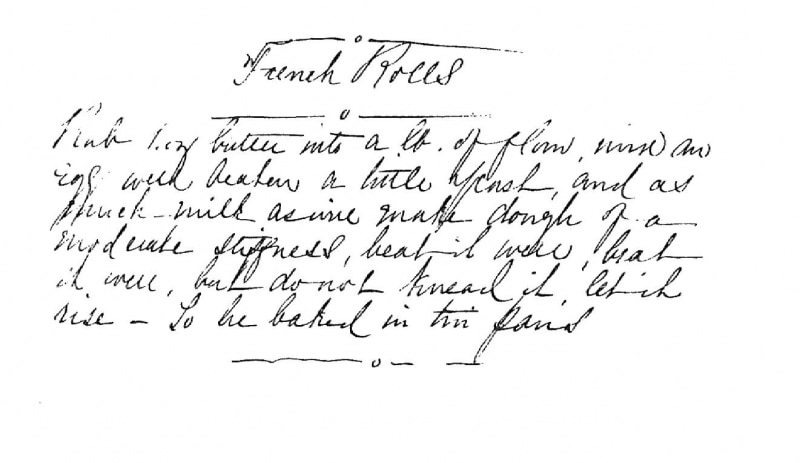 French Rolls
Rub 1.oz butter into a lb. of flour, mix an
egg well beaten a little yeast, and as
much milk as will make dough of a
moderate stiffness, beat it well, beat
it well, but do not knead it, let it
rise – To be baked in tin pans